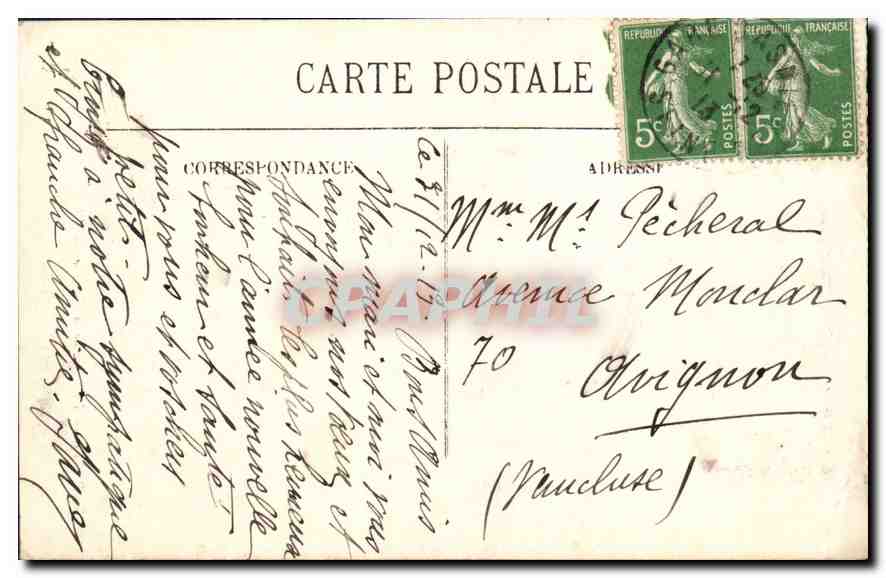 CARTE POSTALE
REPUBLIQUE FRANÇAISE
5c POSTES
REPUBLIQUE FRANÇAISE
5c POSTES
CORRESPONDANCE
ADRESSE
ce 31/12-17 Bons Amis
Mon mari et moi vous
envoyons nos vœux et
souhaits les plus heureux
pour l'année nouvelle
bonheur et santé
pour vous et votre cher
petit.
à notre sympathique
et franche Amitié.
Mme Mt Pécheral
Avenue Monclar
70
Avignon
(Vaucluse)
CPAPHIL